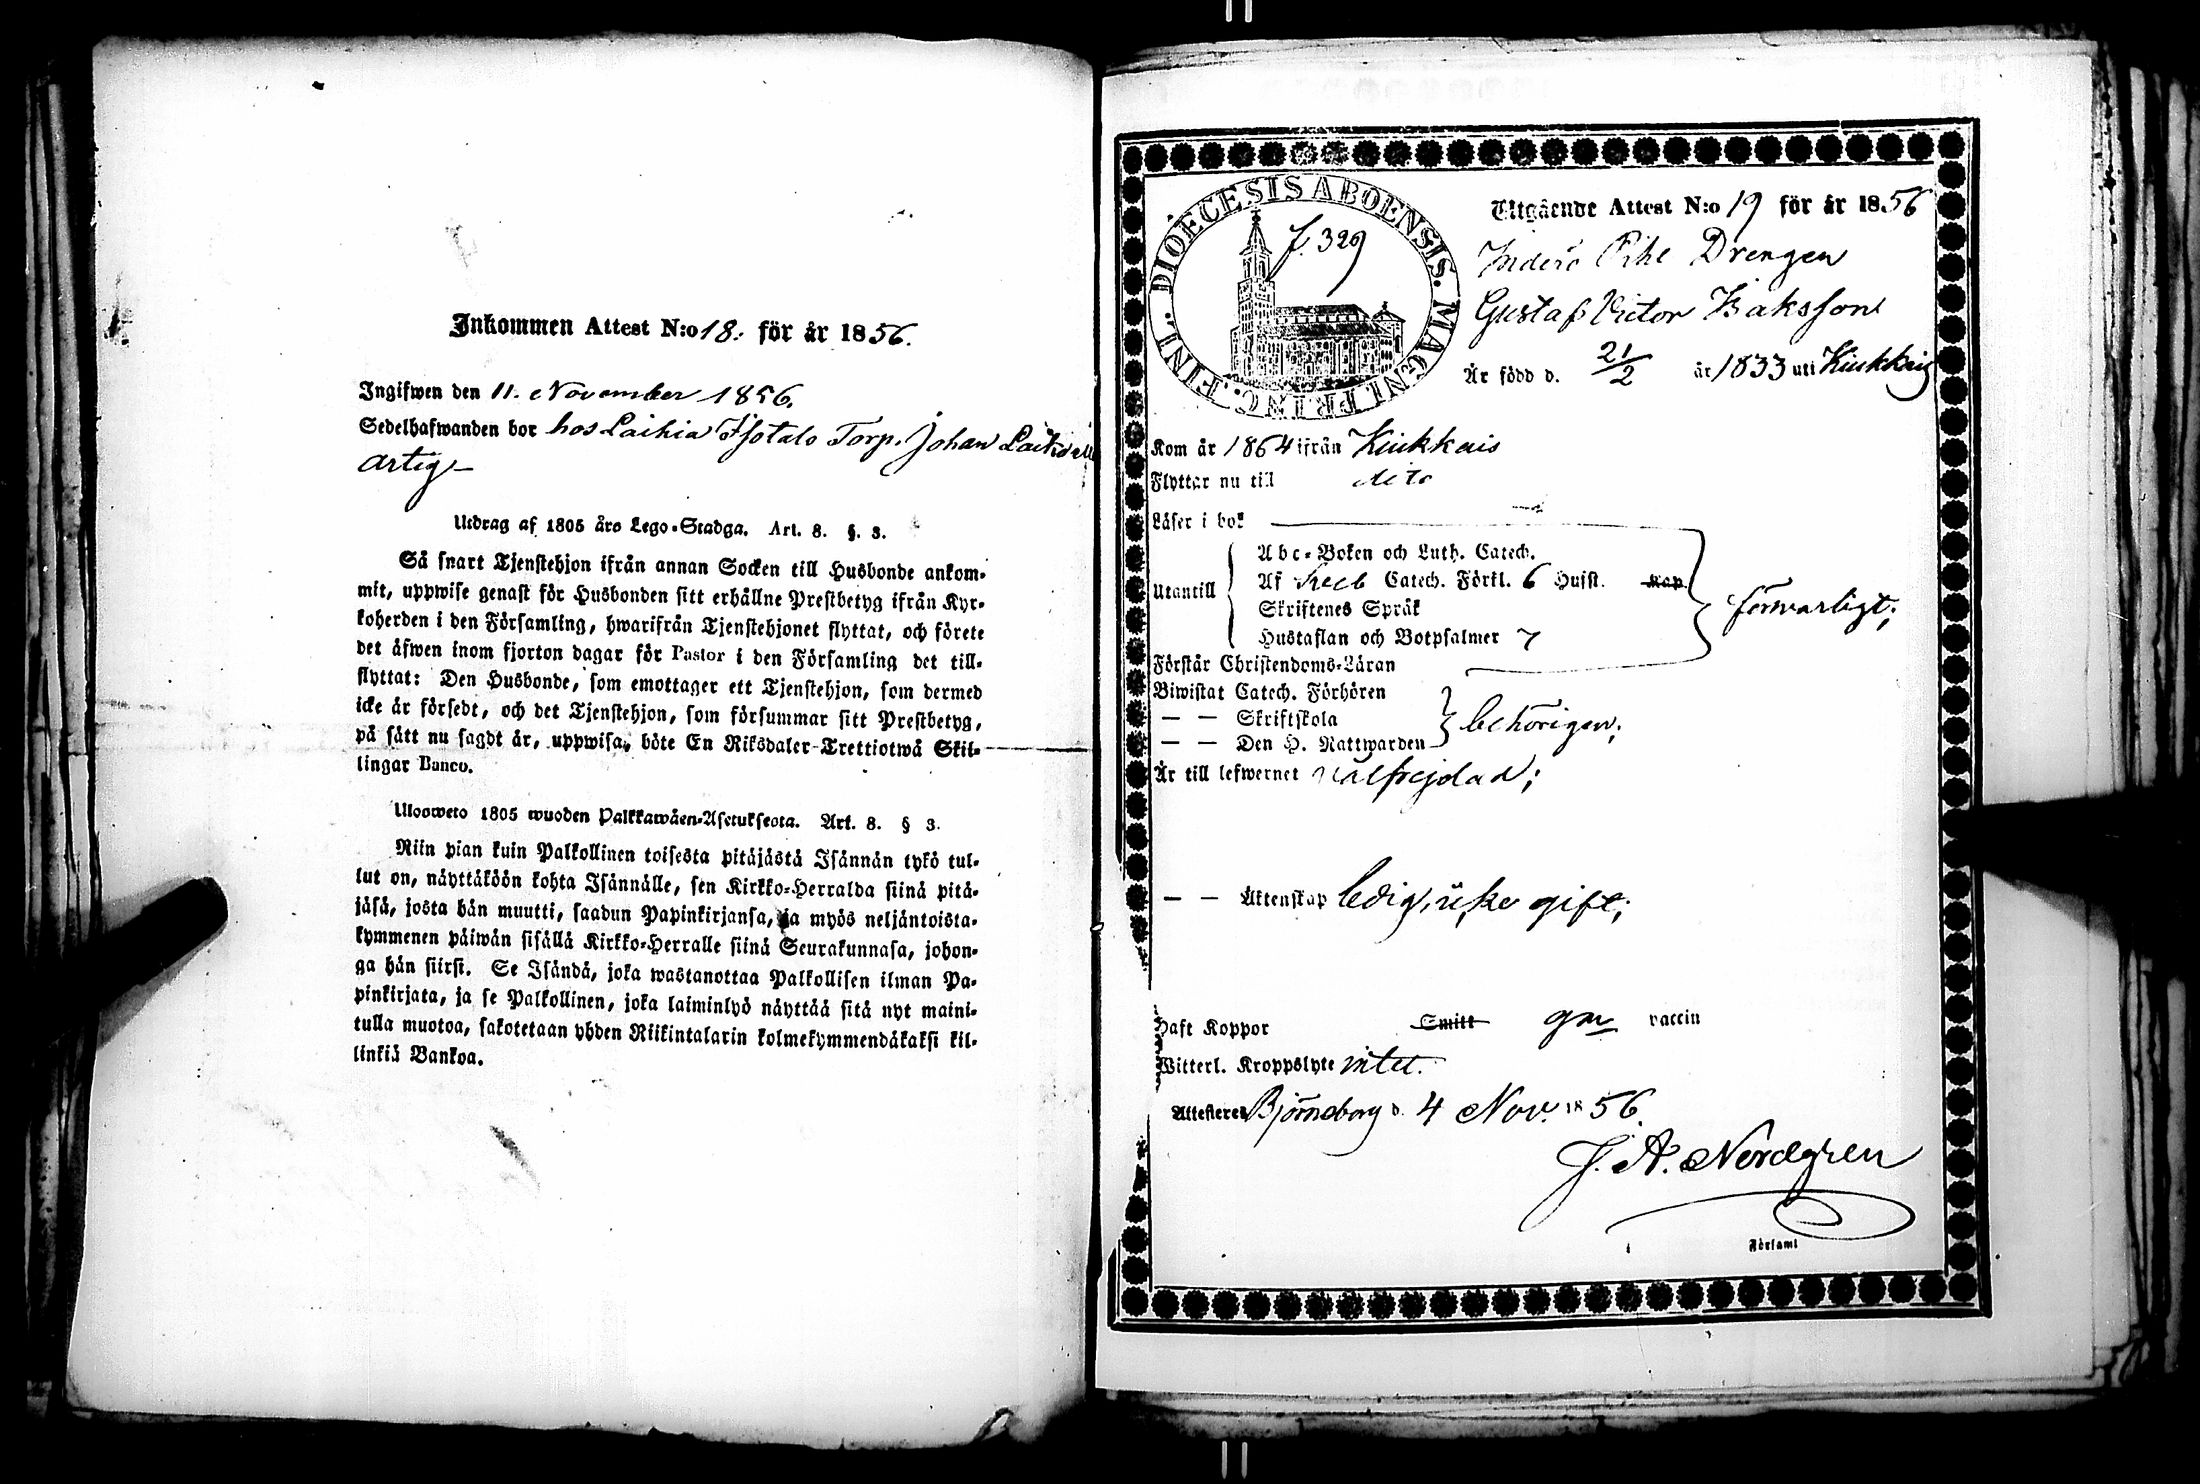 Inkommen Attest N:o 18. för år 1856.
Ingifwen den 11. November 1856.
Sedelhafwanden bor hos Laihia Isotalo Torp. Johan
Utdrag af 1805 års Lego-Stadga. Art. 8. §. 3.
Så snart Tjenstehjon ifrån annan Socken till Husbonde ankom-
mit, uppwise genast för Husbonden sitt erhållne Prestbetyg ifrån Kyr-
koherden i den Församling, hwarifrån Tjenstehjonet flyttat, och förete
det äfwen inom fjorton dagar för Pastor i den Församling det till-
flyttat: Den Husbonde, som emottager ett Tjenstehjon, som dermed
icke är försedt, och det Tjenstehjon, som försummar sitt Prestbetyg,
på sätt nu sagdt är, uppwisa, böte En Riksdaler Trettiotwå Skil-
lingar Banco.
Uloosweto 1805 wuoden Palkkawäen-Asetuksesta. Art. 8. § 3.
Niin pian kuin Palkollinen toisesta pitäjästä Isännän tykö tul-
lut on, näyttäköön kohta Isännälle, sen Kirkko-Herralda siinä pitä-
jäsä, josta hän muutti, saadun Papinkirjansa, ja myös neljäntoista-
kymmenen päiwän sisällä Kirkko-Herralle siinä Seurakunnasa, johon-
ga hän siirsi. Se Isändä, joka wastanottaa Palkollisen ilman Pa-
pinkirjata, ja se Palkollinen, joka laiminlyö näyttää sitä nyt maini-
tulla muotoa, sakotetaan yhden Riikintalarin kolmekymmendäkaksi kil-
linkiä Bankoa.
DIOECESIS ABOENSIS. MAGNI PRINC. FINL.
f. 329
Utgående Attest N:o 19 för år 1856
Drengen
Gustaf Victor Isaksson
Är född d. 21/2 år 1833 uti Kiukkais
Kom år 1864 ifrån Kiukkais
Flyttar nu till dito
Läser i bok
Utantill
Abc-Boken och Luth. Catech.
Af Sveb Catech. Förkl. 6 Hufst. Kap.
Skriftenes Språk
Hustaflan och Botpsalmer 7
förswarligt;
Förstår Christendoms-Läran
Biwistat Catech. Förhören
— — Skriftskola
— — Den H. Nattwarden
behörigen;
Är till lefwernet välfrejdad;
— — Äktenskap ledig, icke gift;
Haft Koppor Smitt gm vaccin
Witterl. Kroppslyte intet.
Attesteres Björneborg d. 4 Nov. 1856.
J. A. Nordgren
Församl